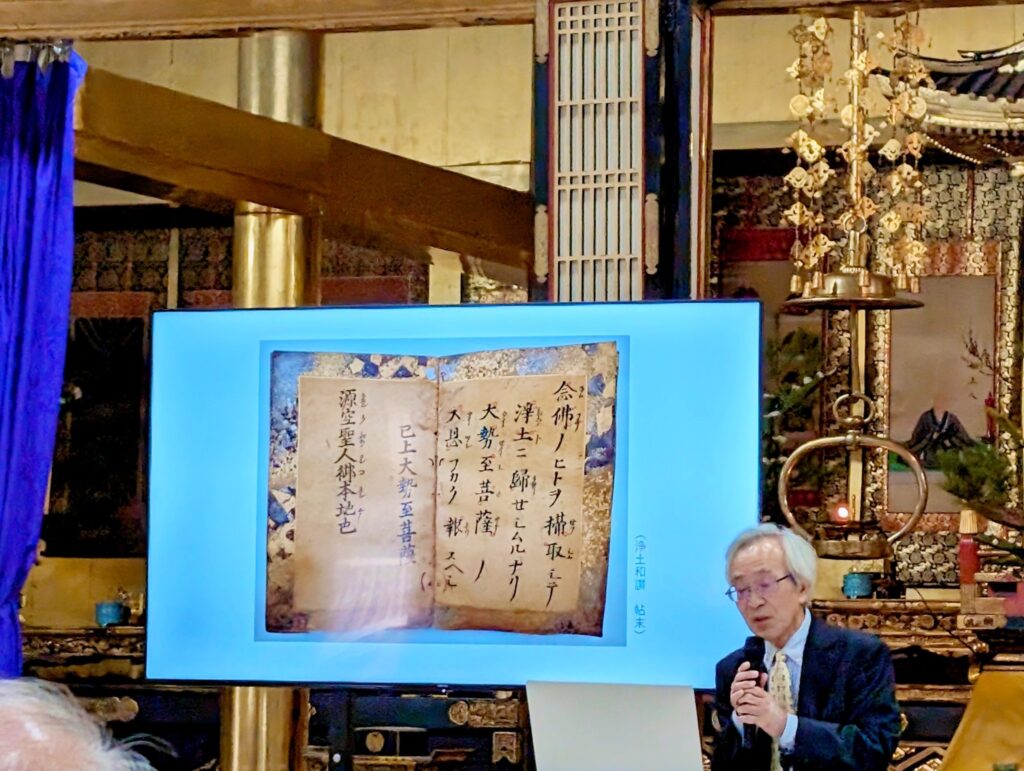 念佛ノヒトヲ攝取シテ
淨土ニ歸セシムルナリ
大勢至菩薩ノ
大恩フカク報スヘシ
已上大勢至菩薩
源空聖人御本地也
（浄土和讃　帖末）